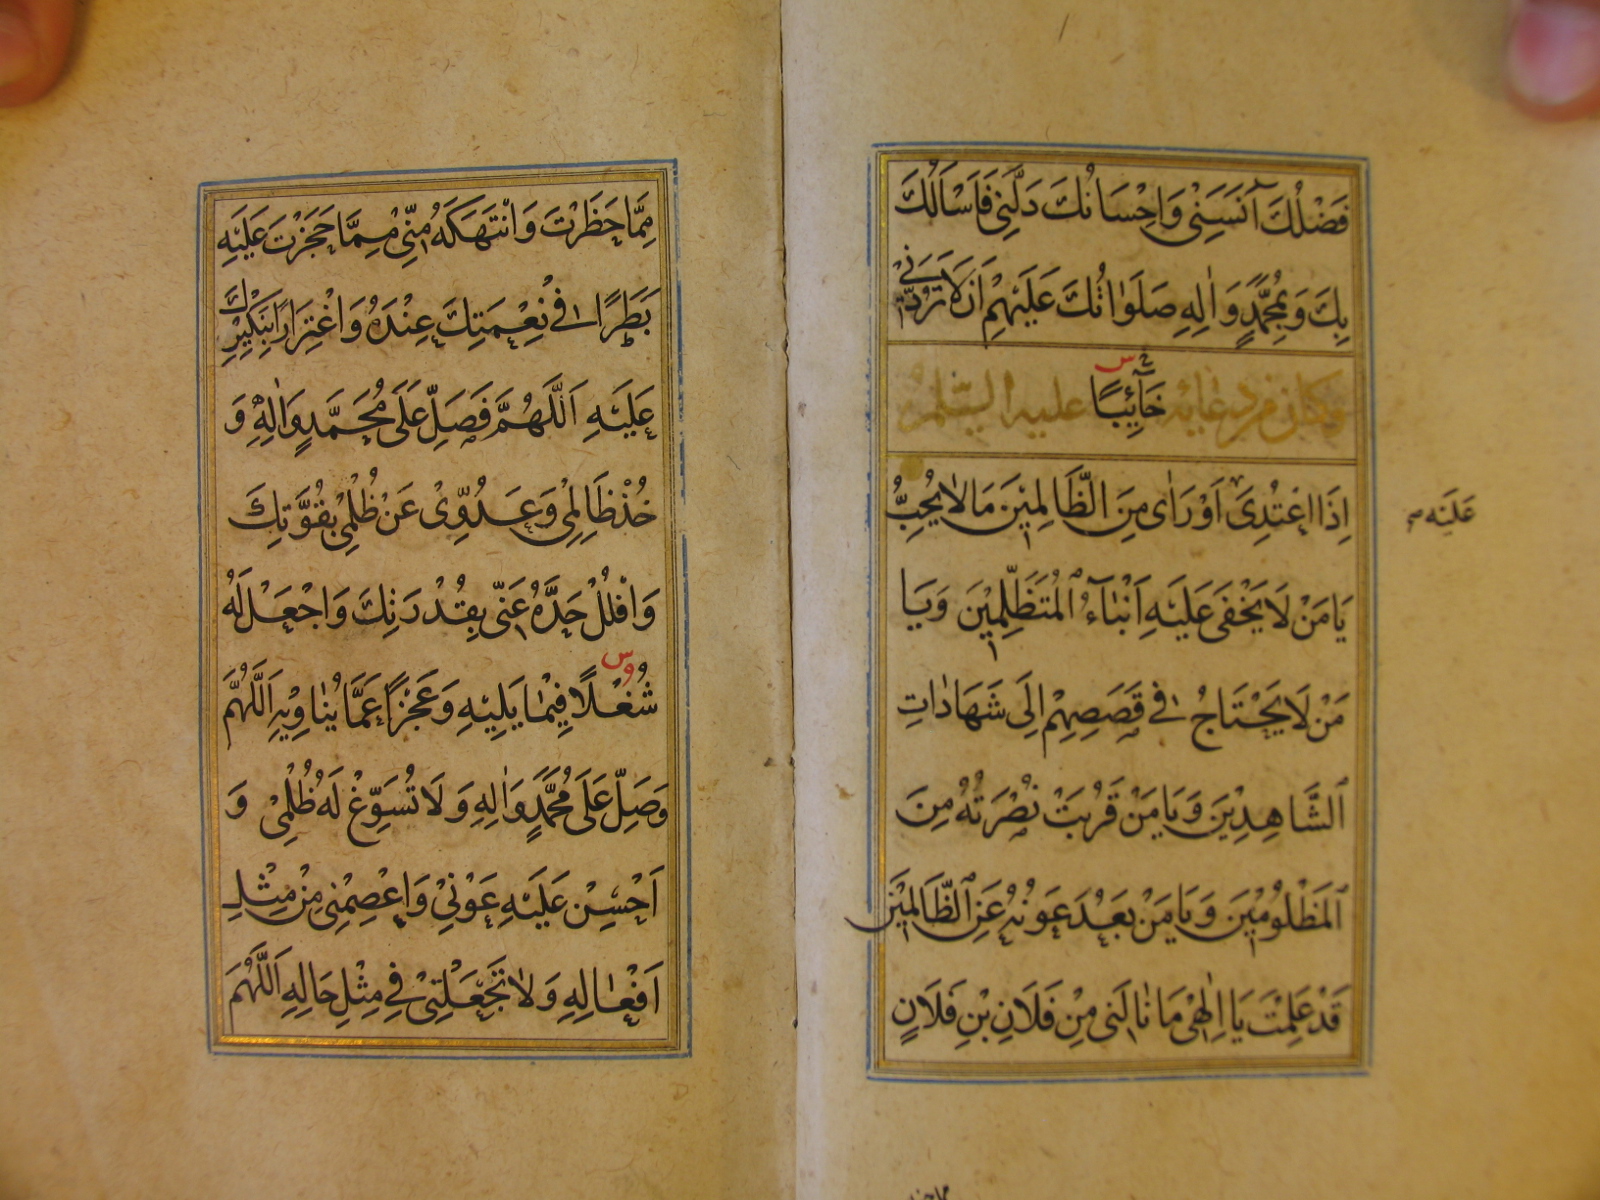 فَضْلُكَ آنَسَنِي وَاِحْسَانُكَ دَلَّنِي فَاَسْاَلُكَ
بِكَ وَبِمُحَمَّدٍ وَاٰلِهِ صَلَوَاتُكَ عَلَيْهِمْ اَنْ لَا تَرُدَّنِي
وكان من دعائه خَآئِبًا عليه السلام
اِذَا اعْتُدِيَ اَوْ رَاٰى مِنَ الظَّالِمِيْنَ مَا لَا يُحِبُّ
عَلَيْهِ
يَا مَنْ لَا يَخْفَى عَلَيْهِ اَنْبَآءُ الْمُتَظَلِّمِيْنَ وَيَا
مَنْ لَا يَحْتَاجُ فِي قَصَصِهِمْ اِلَى شَهَادَاتِ
الشَّاهِدِيْنَ وَيَا مَنْ قَرُبَتْ نُصْرَتُهُ مِنَ
الْمَظْلُومِيْنَ وَيَا مَنْ بَعُدَ عَوْنُهُ عَنِ الظَّالِمِيْنَ
قَدْ عَلِمْتَ يَا اِلٰهِيْ مَا نَالَنِي مِنْ فُلَانِ بْنِ فُلَانٍ
مِمَّا حَظَرْتَ وَانْتَهَكَهُ مِنِّيْ مِمَّا حَجَزْتَ عَلَيْهِ
بَطَرًا فِيْ نِعْمَتِكَ عِنْدَهُ وَاغْتِرَارًا بِنَكِيْرِكَ
عَلَيْهِ اَللّٰهُمَّ فَصَلِّ عَلَى مُحَمَّدٍ وَاٰلِهِ وَ
خُذْ ظَالِمِيْ وَعَدُوِّيْ عَنْ ظُلْمِيْ بِقُوَّتِكَ
وَافْلُلْ حَدَّهُ عَنِّي بِقُدْرَتِكَ وَاجْعَلْ لَهُ
شُغْلًا فِيْمَا يَلِيْهِ وَعَجْزًا عَمَّا يُنَاوِيْهِ اَللّٰهُمَّ
وَصَلِّ عَلَى مُحَمَّدٍ وَاٰلِهِ وَلَا تُسَوِّغْ لَهُ ظُلْمِيْ وَ
اَحْسِنْ عَلَيْهِ عَوْنِيْ وَاعْصِمْنِي مِنْ مِثْلِ
اَفْعَالِهِ وَلَا تَجْعَلْنِيْ فِي مِثْلِ حَالِهِ اَللّٰهُمَّ